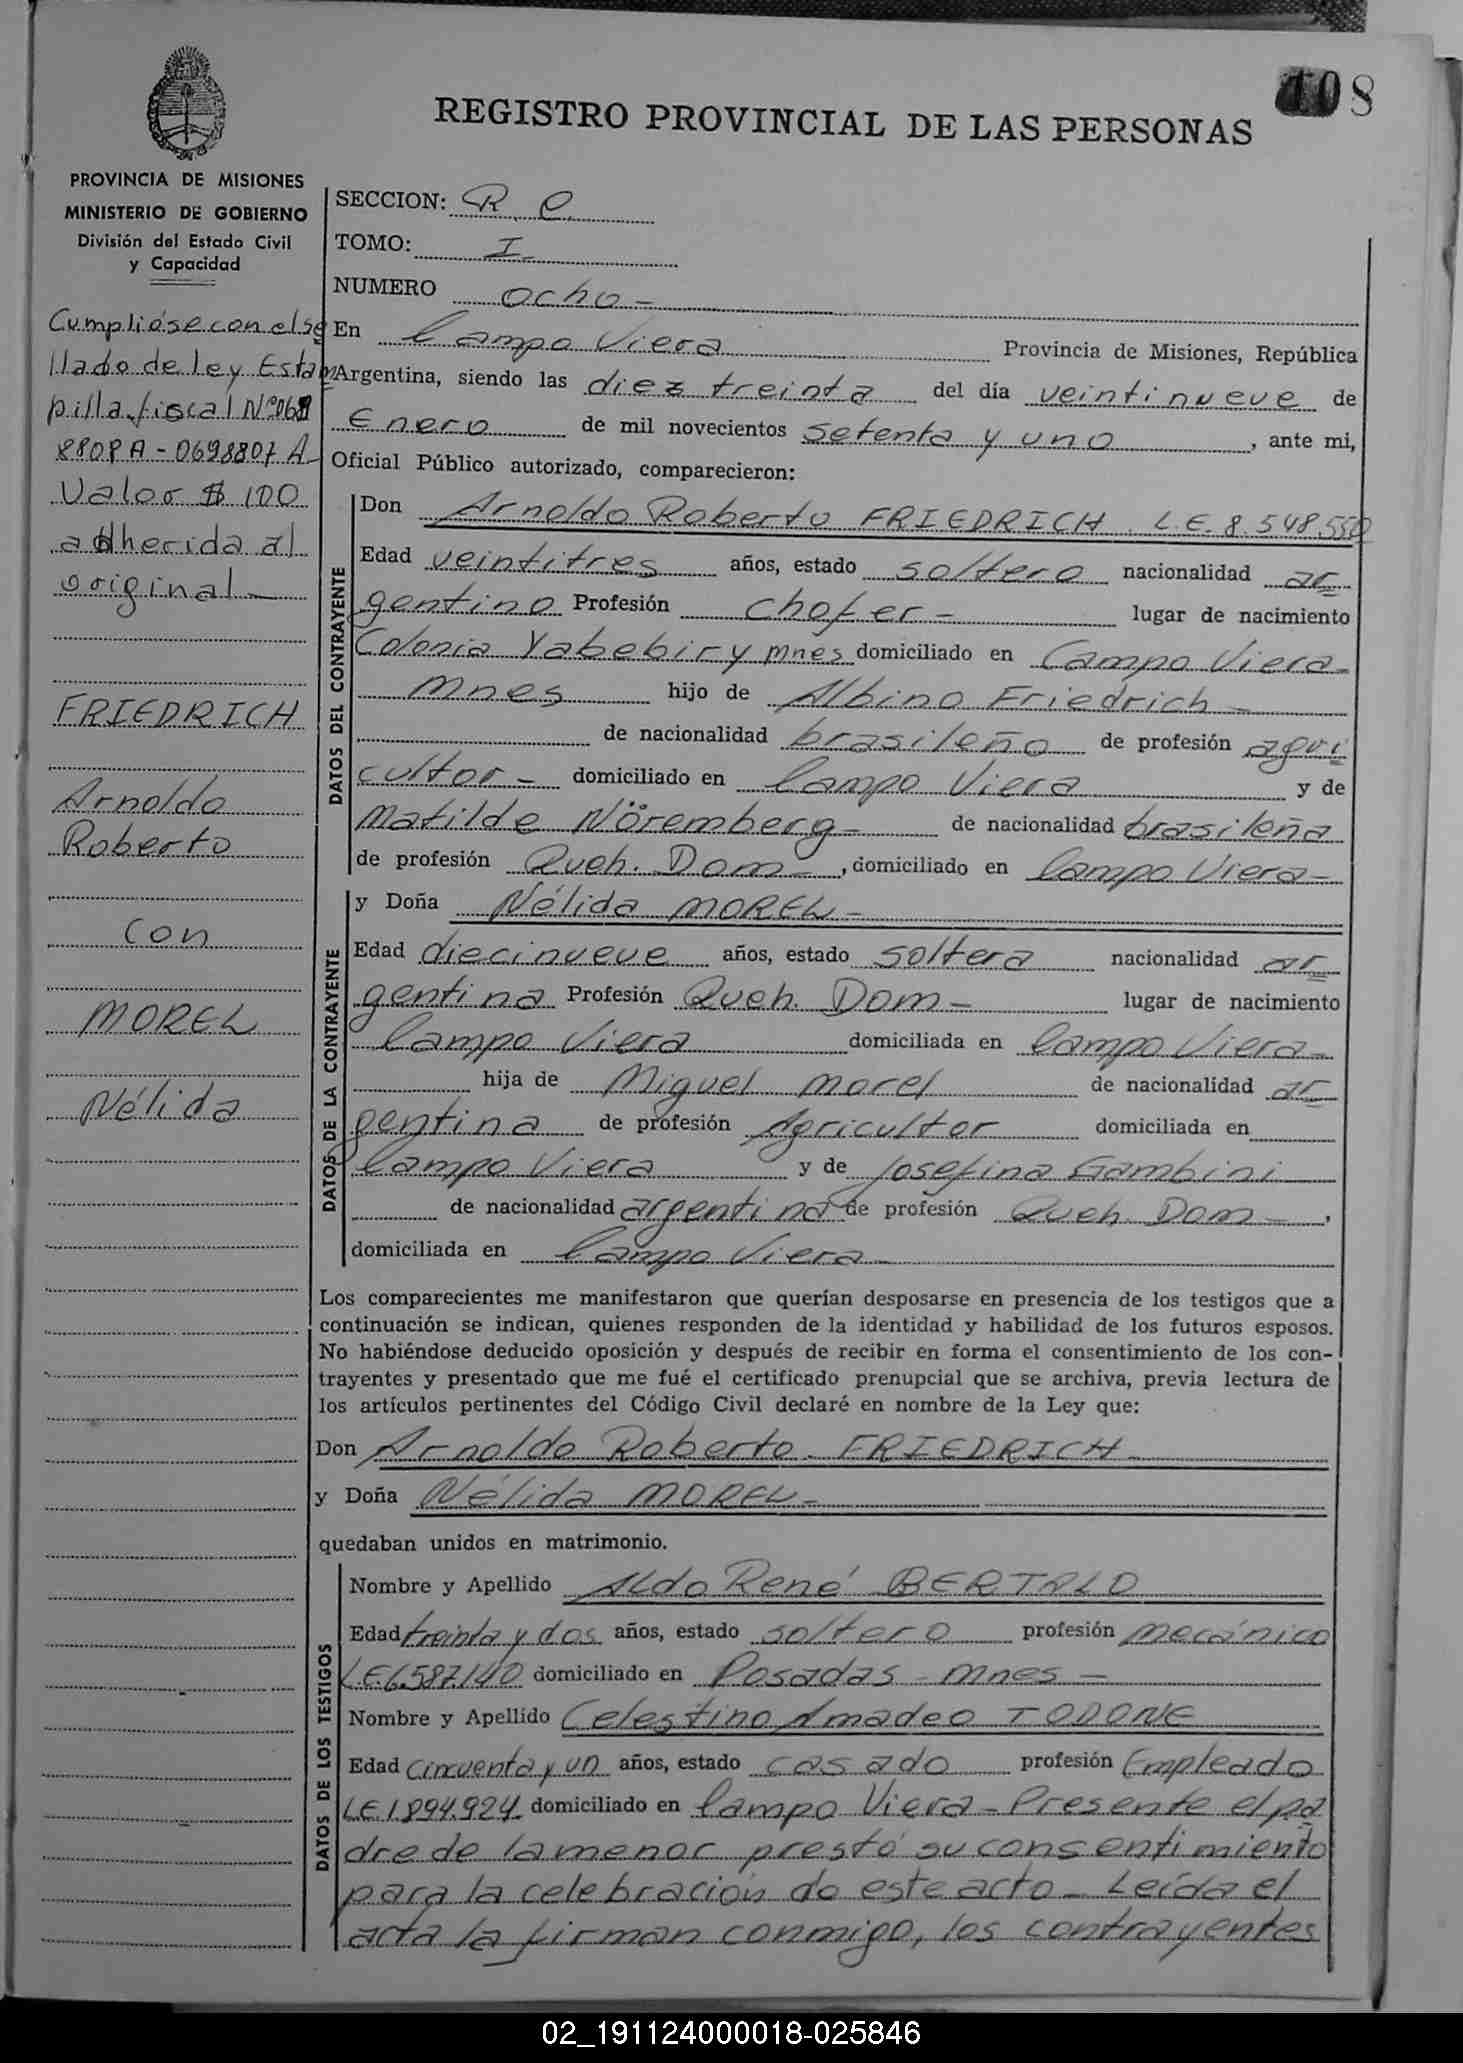 108
REGISTRO PROVINCIAL DE LAS PERSONAS
PROVINCIA DE MISIONES
MINISTERIO DE GOBIERNO
División del Estado Civil
y Capacidad
Cumplióse con el se
llado de ley Estam
pilla fiscal Nº
- 0698807 A
Valor $ 100
adherida al
original -
FRIEDRICH
Arnoldo
Roberto
con
MOREL
Nélida
SECCION: R. C.
TOMO: I -
NUMERO ocho -
En Campo Viera Provincia de Misiones, República
Argentina, siendo las diez treinta del día veintinueve de
Enero de mil novecientos setenta y uno, ante mi,
Oficial Público autorizado, comparecieron:
DATOS DEL CONTRAYENTE
Don Arnoldo Roberto FRIEDRICH L.E. 8.548.550
Edad veintitres años, estado soltero nacionalidad ar
gentino Profesión chofer - lugar de nacimiento
Colonia Yabebiry mnes domiciliado en Campo Viera -
mnes hijo de Albino Friedrich -
de nacionalidad brasileño de profesión agri
cultor - domiciliado en Campo Viera y de
Matilde Nöremberg - de nacionalidad brasileña
de profesión Queh. Dom -, domiciliado en Campo Viera -
DATOS DE LA CONTRAYENTE
y Doña Nélida MOREL -
Edad diecinueve años, estado soltera nacionalidad ar
gentina Profesión Queh. Dom - lugar de nacimiento
Campo Viera domiciliada en Campo Viera -
hija de Miguel Morel de nacionalidad ar
gentina de profesión Agricultor domiciliada en
Campo Viera y de Josefina Gambini
de nacionalidad argentina de profesión Queh. Dom -,
domiciliada en Campo Viera
Los comparecientes me manifestaron que querían desposarse en presencia de los testigos que a
continuación se indican, quienes responden de la identidad y habilidad de los futuros esposos.
No habiéndose deducido oposición y después de recibir en forma el consentimiento de los con-
trayentes y presentado que me fué el certificado prenupcial que se archiva, previa lectura de
los artículos pertinentes del Código Civil declaré en nombre de la Ley que:
Don Arnoldo Roberto FRIEDRICH
y Doña Nélida MOREL -
quedaban unidos en matrimonio.
DATOS DE LOS TESTIGOS
Nombre y Apellido Aldo René BERTALO
Edad treinta y dos años, estado soltero profesión mecánico
L.E. 6.587.140 domiciliado en Posadas - mnes -
Nombre y Apellido Celestino Amadeo TODONE
Edad cincuenta y un años, estado casado profesión Empleado
L.E. 1.894.924 domiciliado en Campo Viera - Presente el pa
dre de la menor prestó su consentimiento
para la celebración de este acto - Leída el
acta la firman conmigo, los contrayentes
02_191124000018-025846